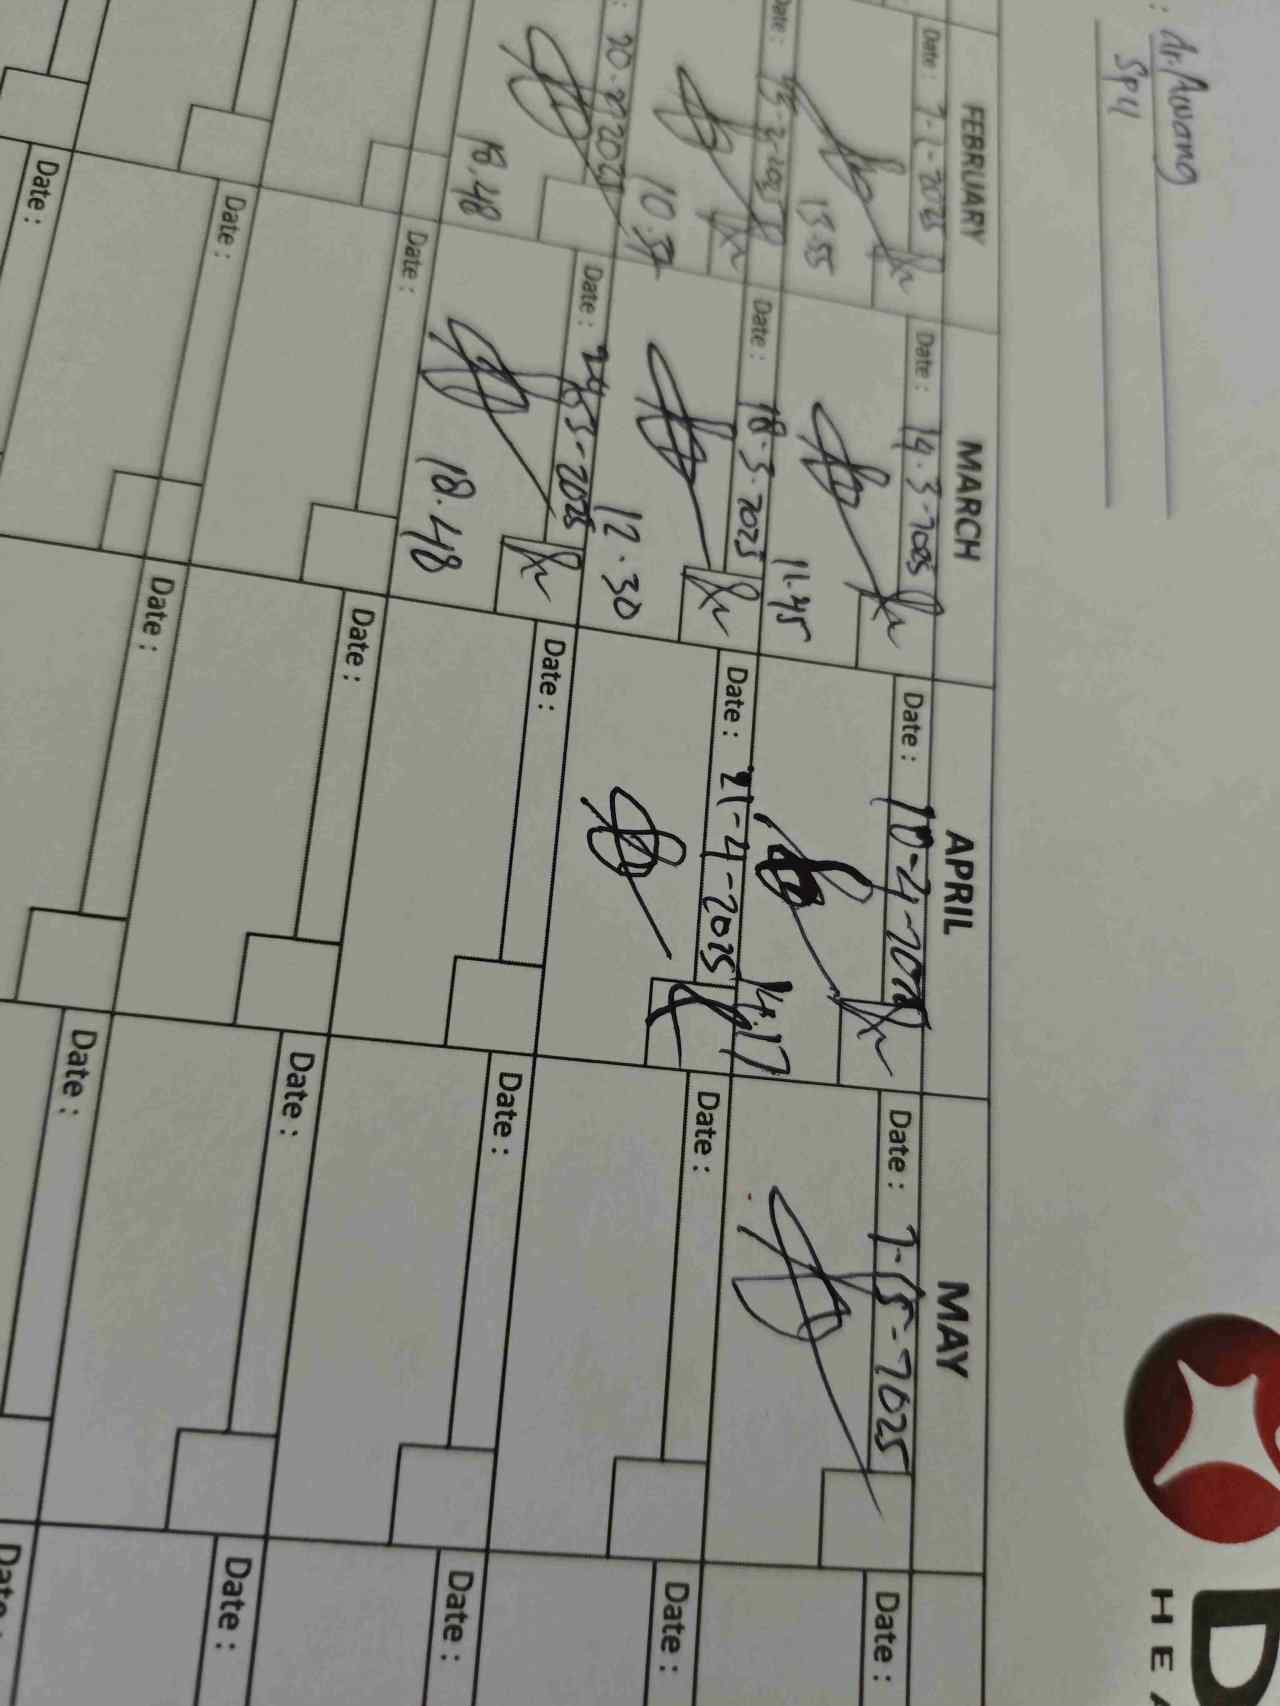 : dr. Awang
Sp11
D
HEA
FEBRUARY MARCH APRIL MAY
Date : 7-2-2025 Date : 14.3-2025 Date : 10-4-2025 Date : 7-5-2025 Date :
13.55 11.45 14.17
Date : 13-2-2025 Date : 18.3.2025 Date : 21-4-2025 Date : Date :
10.37 12.30
: 20-2-2025 Date : 24-3-2025 Date : Date : Date :
18.48 18.48
Date : Date : Date : Date :
Date : Date : Date : Date :
Date :